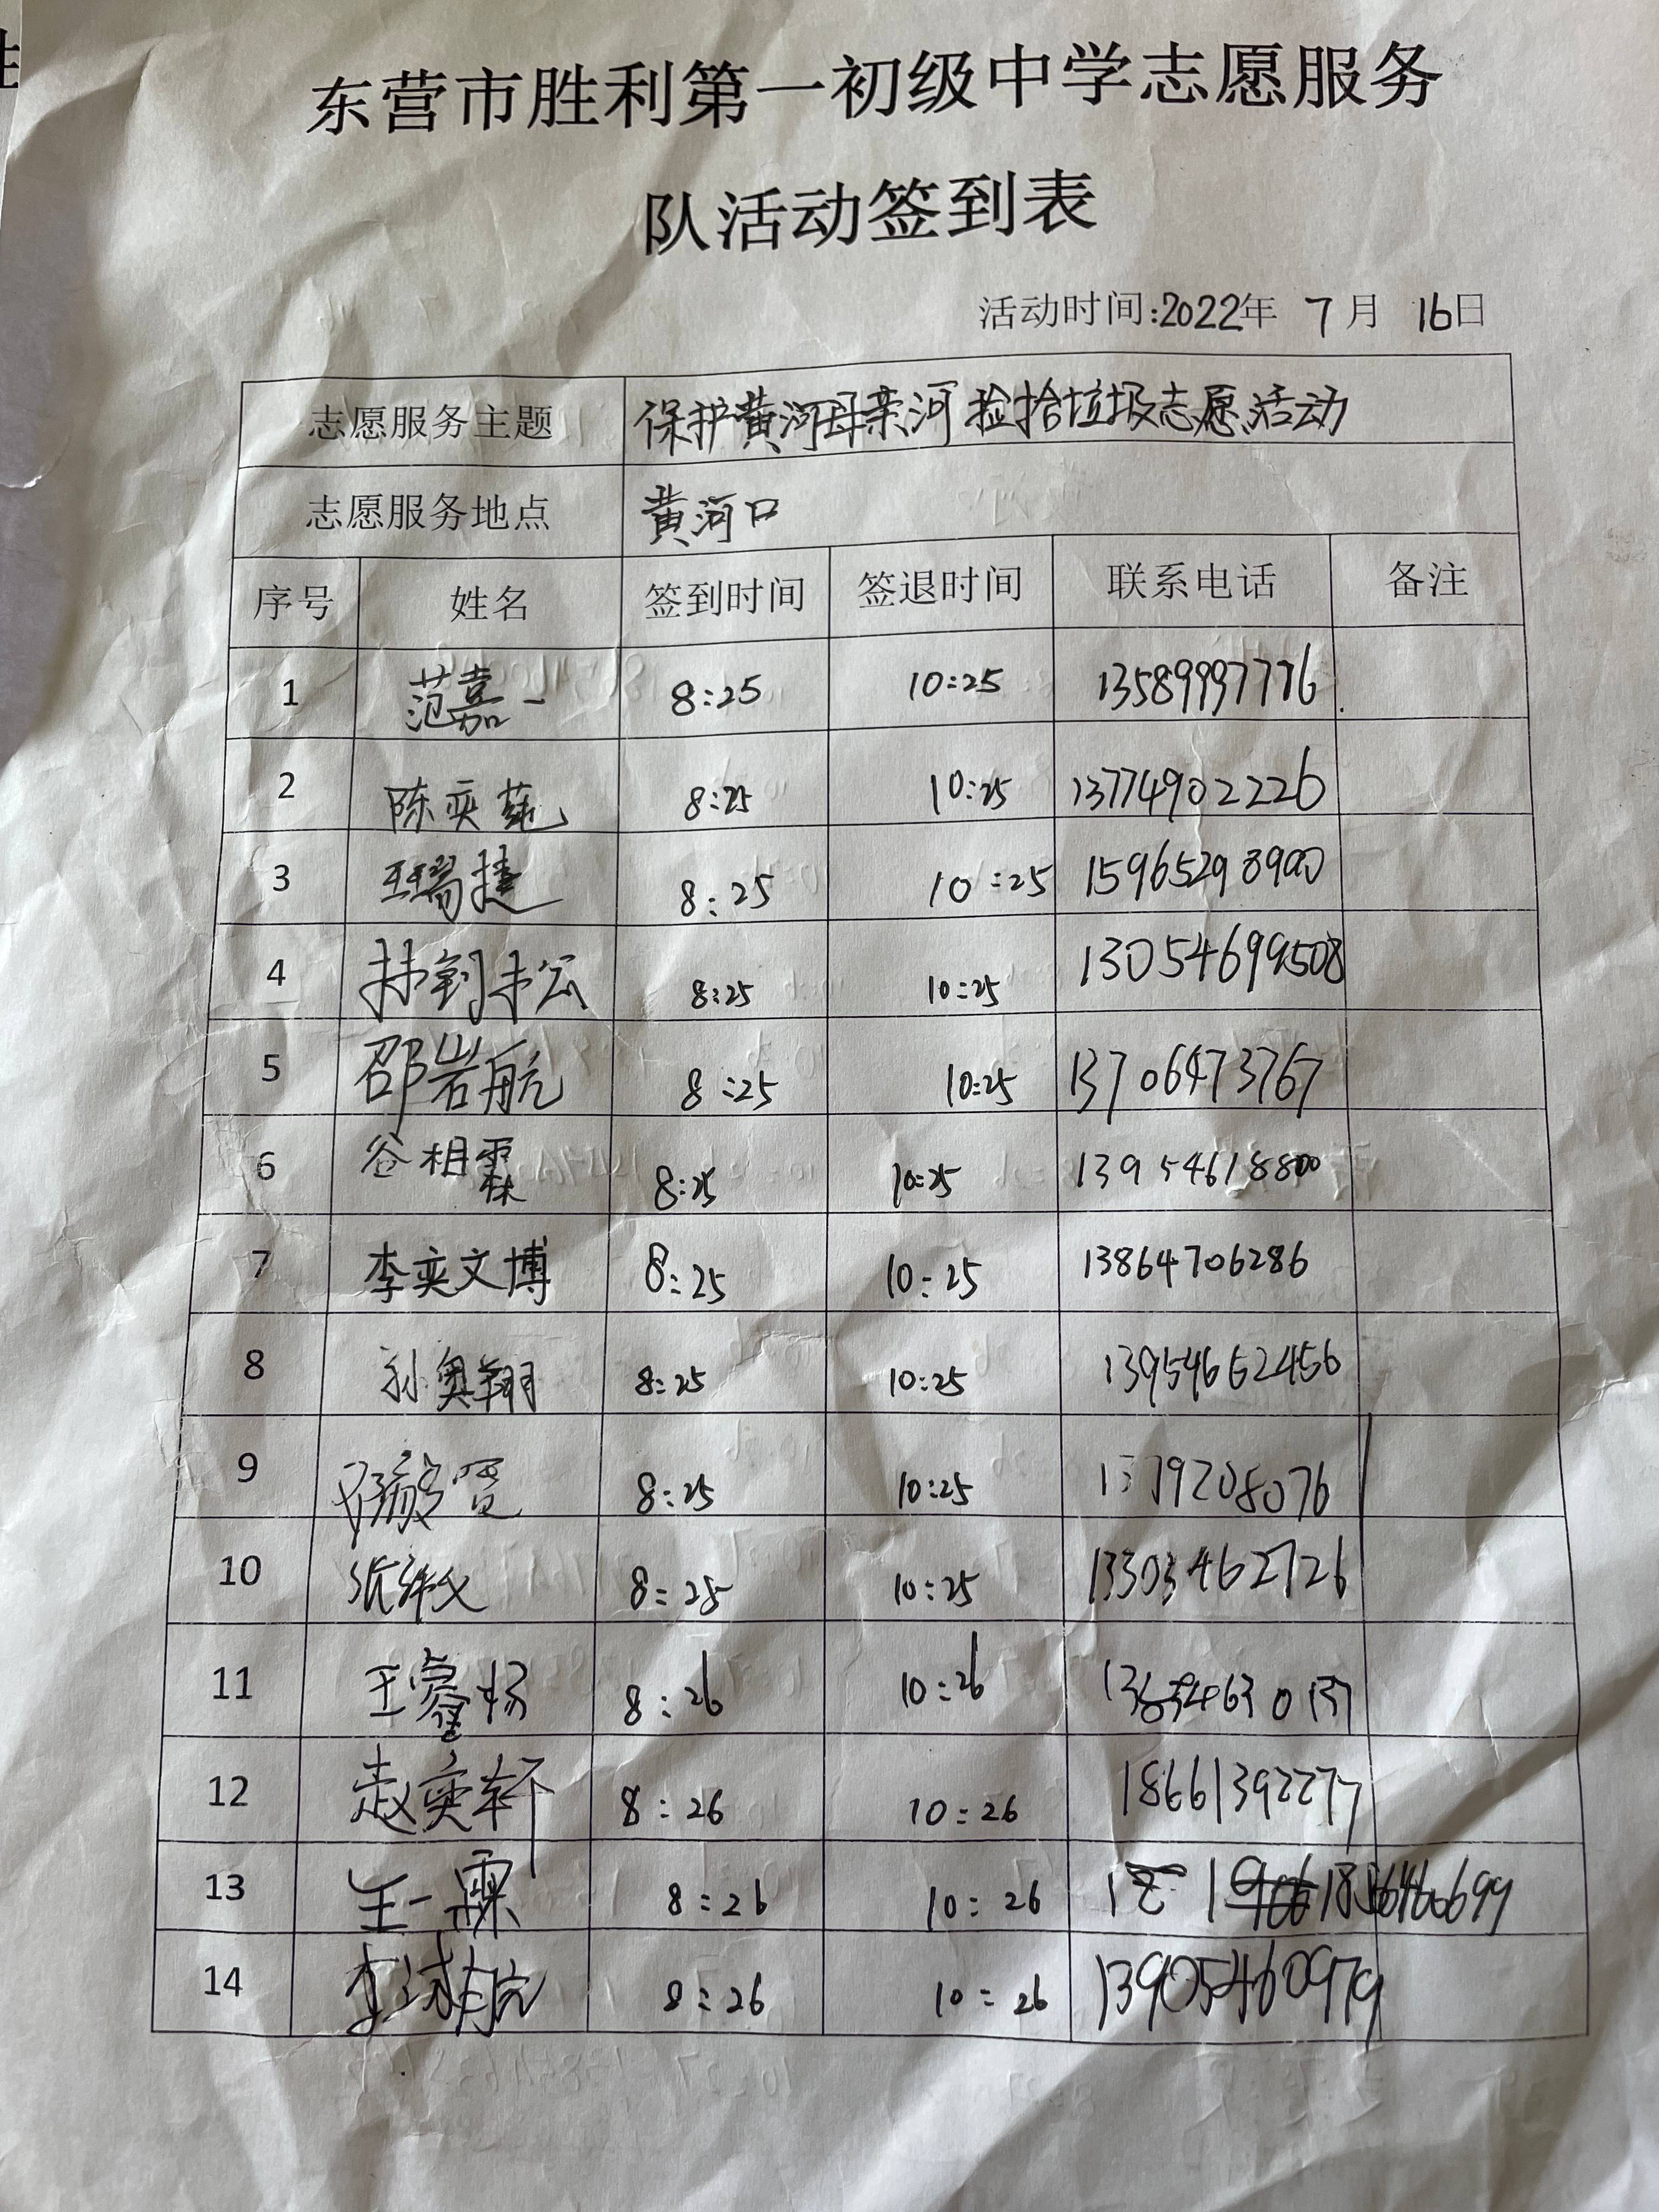 东营市胜利第一初级中学志愿服务
队活动签到表
活动时间:2022年 7月 16日
志愿服务主题 保护黄河母亲河捡拾垃圾志愿活动
志愿服务地点 黄河口
序号 姓名 签到时间 签退时间 联系电话 备注
1 范嘉一 8:25 10:25 13589997776
2 陈奕莼 8:25 10:25 13774902226
3 捷 8:25 10:25 15965298900
4 林钊松 8:25 10:25 13054699508
5 邵岩航 8:25 10:25 13706473767
6 谷相霖 8:25 10:25 13954618800
7 李奕文博 8:25 10:25 13864706286
8 孙奥翔 8:25 10:25 13954662456
9 8:25 10:25
10 8:25 10:25 13303462726
11 王睿扬 8:26 10:26
12 赵奕轩 8:26 10:26 18661392277
13 王一霖 8:26 10:26
14 李航 8:26 10:26 13905460979